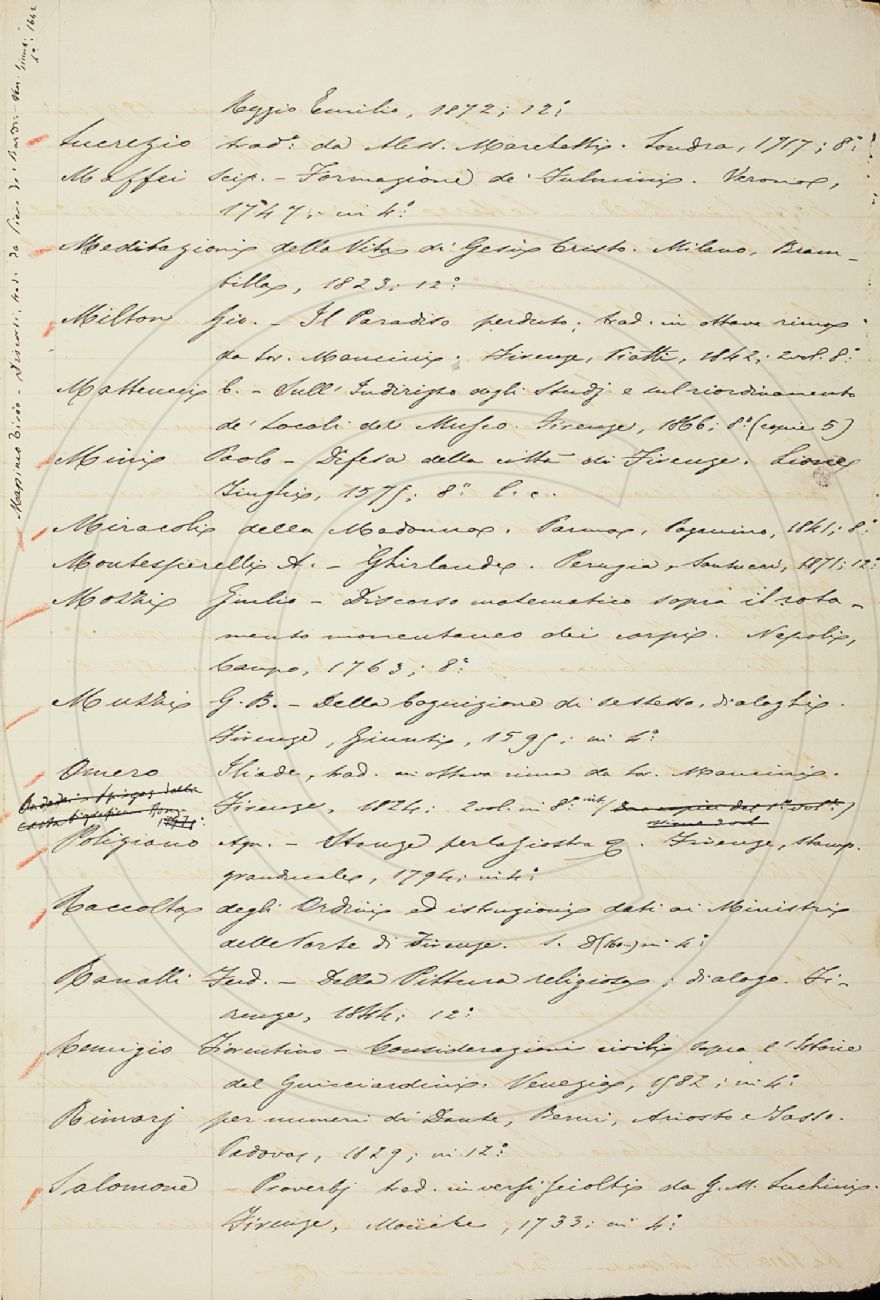 Massimo Tirio - Discorsi, trad. da Piero de' Bardi. Ven. Giunti 1642
4°:
Reggio Emilia, 1872; 12°:
Lucrezio trad: da Aless. Marchetti. Londra, 1717; 8°:
Maffei Scip. - Formazione de' Fulmini. Verona,
1747; in 4°:
Meditazioni della Vita di Gesù Cristo. Milano, Bram-
billa, 1823; 12°:
Milton Gio. - Il Paradiso perduto; trad. in ottava rima
da Lor. Mancini. Firenze, Piatti, 1842; 2 vol. 8°:
Matteucci C. - Sull' Indirizzo degli Studj e sul riordinamento
de' Locali del Museo. Firenze, 1866; 8° (copie 5)
Mini Paolo - Difesa della città di Firenze. Lione
1575; 8°:
Miracoli della Madonna. Parma, Paganino, 1841; 8°:
Montesperelli A. - Ghirlanda. Perugia, Santucci, 1871; 12°:
Mozzi Giulio - Discorso matematico sopra il rota-
mento momentaneo dei corpi. Napoli,
Campo, 1763; 8°:
Muzzi G. B. - Della Cognizione di se stesso, dialoghi.
Firenze, Giunti, 1595; in 4°:
Omero Iliade, trad. in ottava rima da Lor. Mancini.
Firenze, 1824; 2 vol. in 8°:
Poliziano Agn. - Stanze per la Giostra &. Firenze, Stamp.
granducale, 1794; in 4°:
Raccolta degli Ordini ed istruzioni dati ai Ministri
delle Porte di Firenze. S. D. in 4°:
Ranalli Ferd. - Della Pittura religiosa; dialogo. Fi-
renze, 1844; 12°:
Remigio Fiorentino - Considerazioni civili sopra l'Istorie
del Guicciardini. Venezia, 1582; in 4°:
Rimarj per numeri di Dante, Berni, Ariosto e Tasso.
Padova, 1829; in 12°:
Salomone - Proverbj trad. in versi sciolti da G. M. Luchini.
Firenze, Moücke, 1733; in 4°: